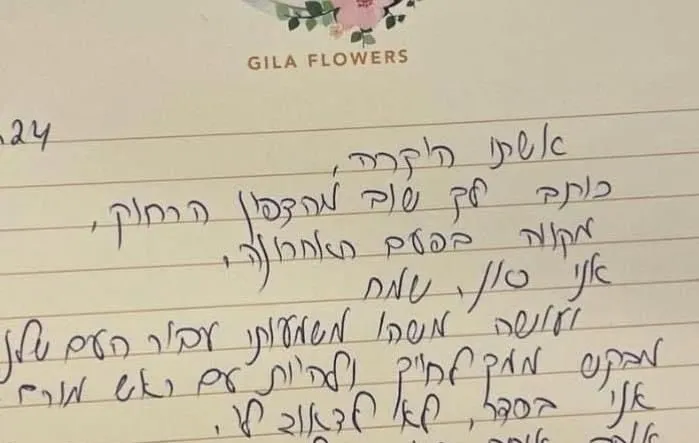 GILA FLOWERS
.24
אשתי היקרה,
כותב לך שוב מהצפון הרחוק,
מקווה בפעם האחרונה,
אני כאן, שמח
ועושה משהו משמעותי עבור העם שלנו
מבקש ממך לחייך ולהיות עם ראש מורם
אני בסדר, לא לדאוג לי.